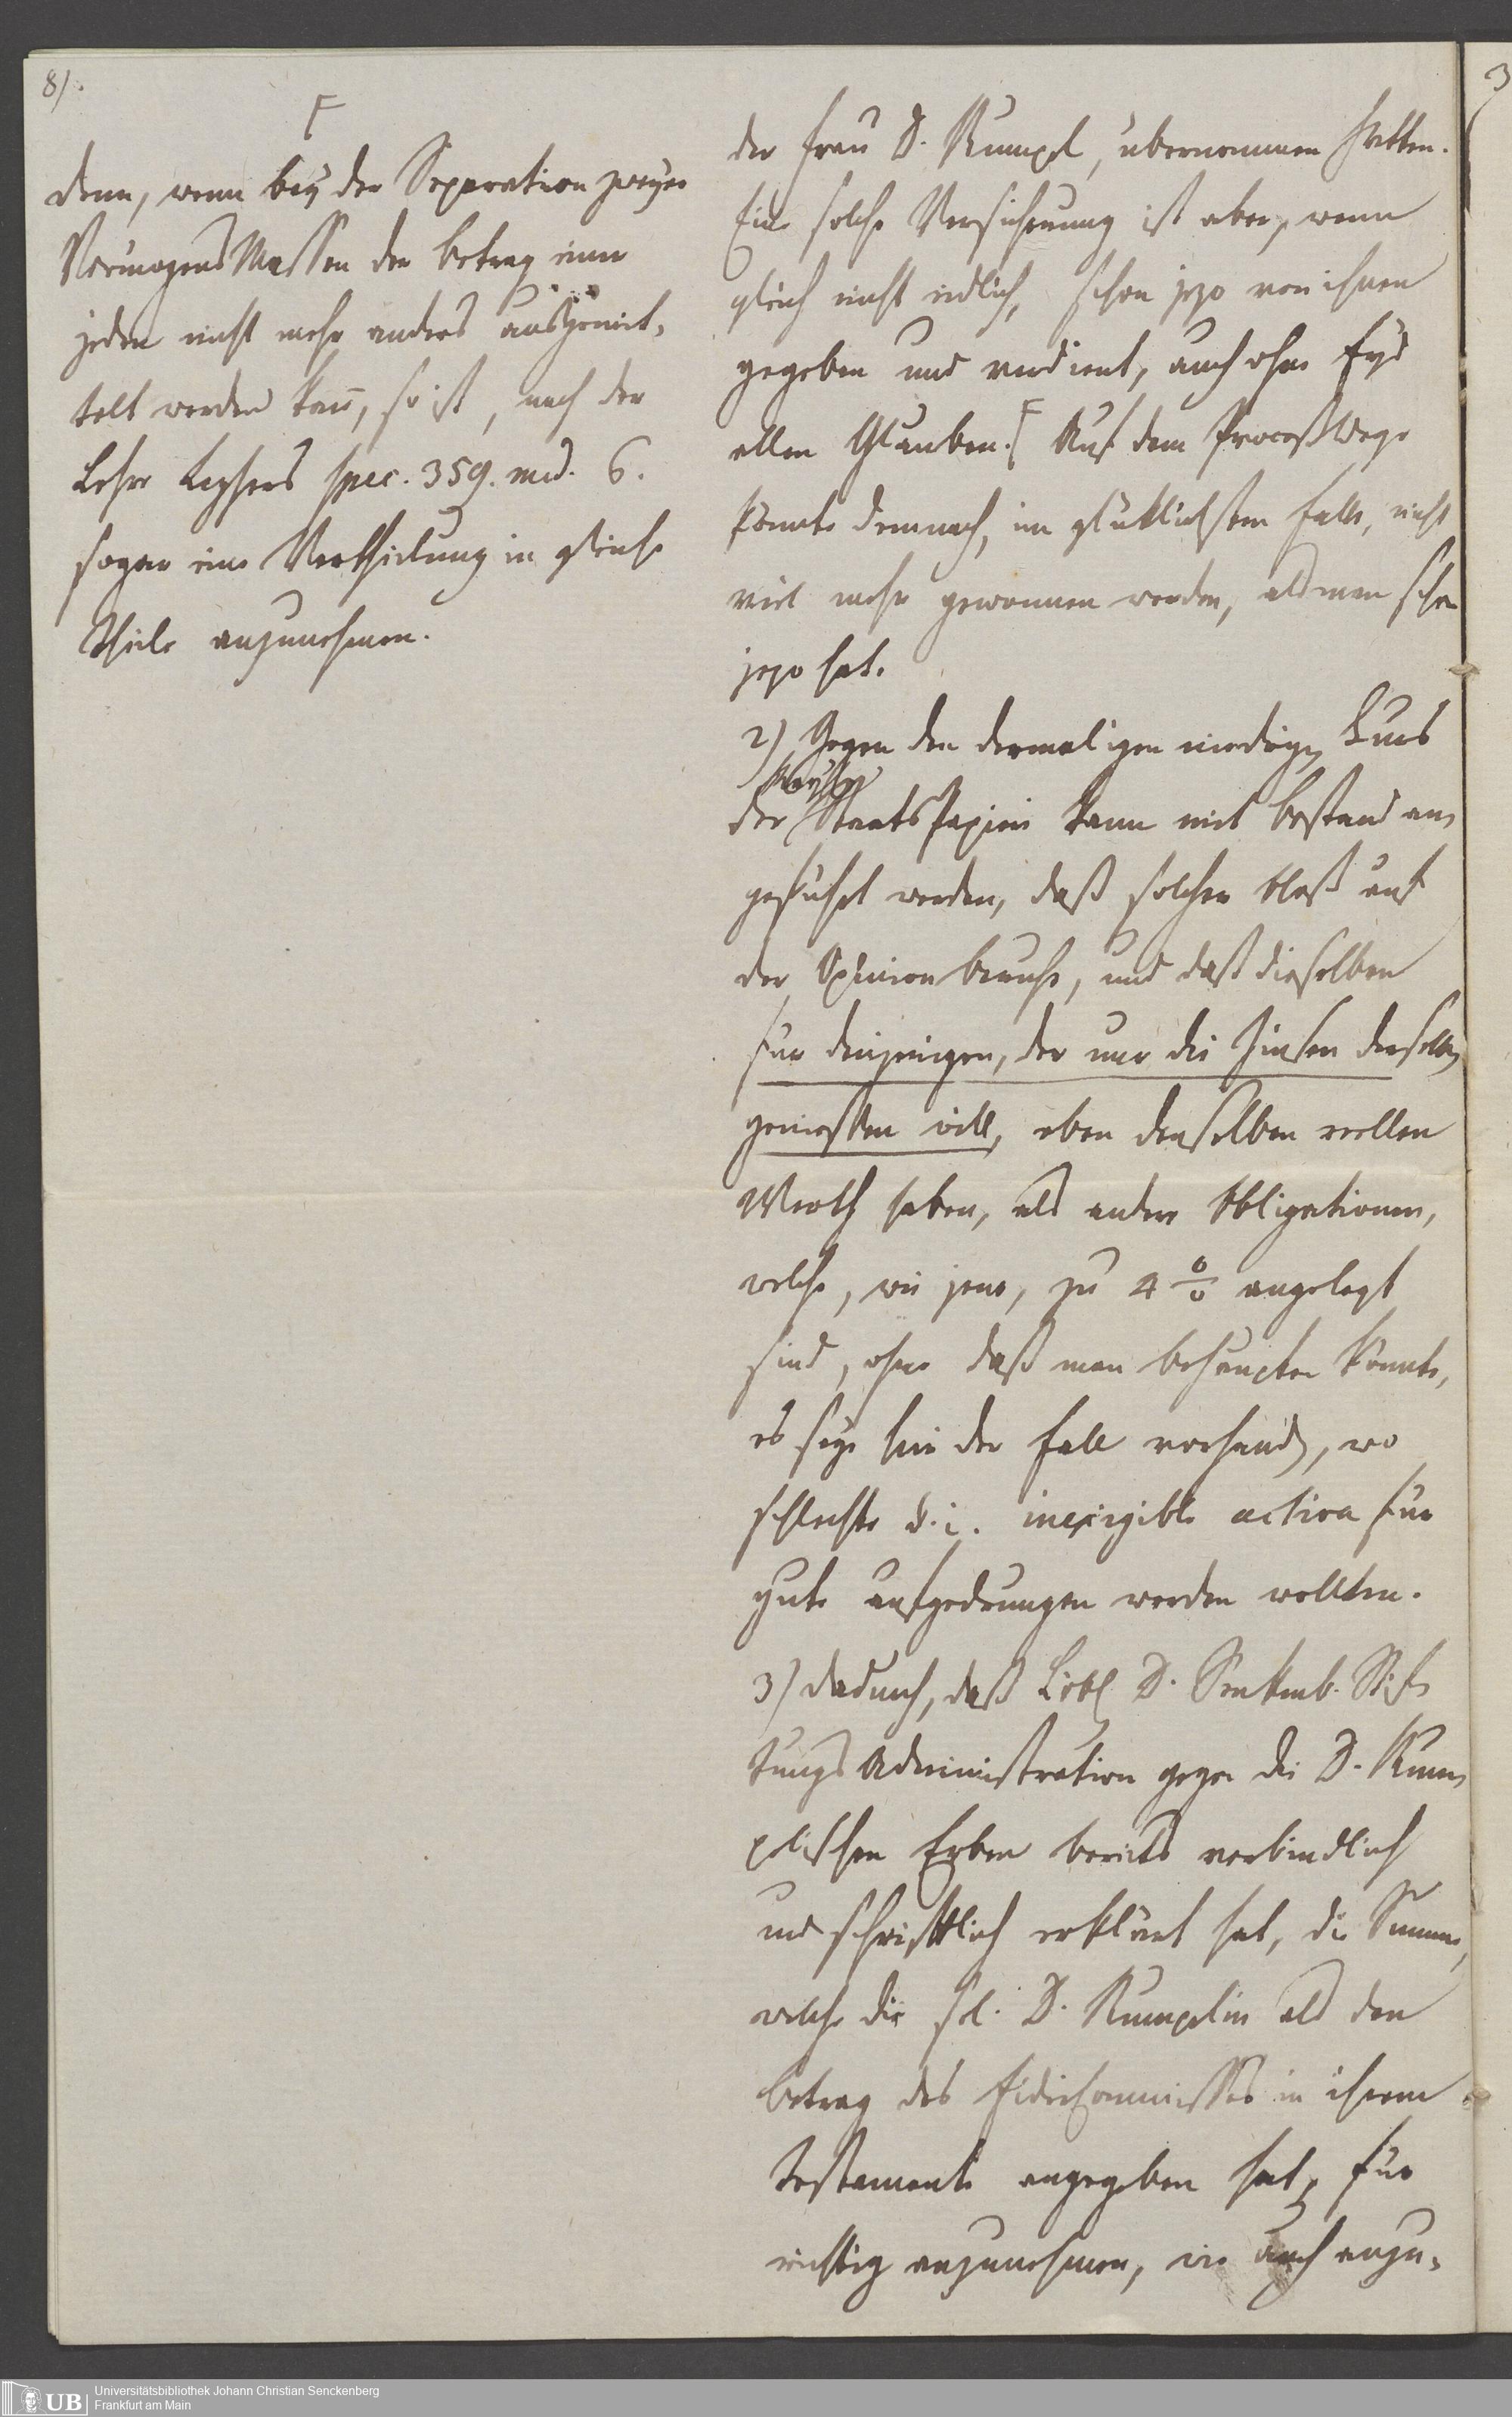 8).
F
denn, wenn bey der Separation zweyer
VermögensMassen der Betrag einer
jeden nicht mehr anders ausgemit-
telt werden kañ, so ist, nach der
Lehre Leysers spec. 359. med. 6.
sogar eine Vertheilung in gleiche
Theile anzunehmen.
der Frau D. Rumpel, übernommen hätten.
Eine solche Versicherung ist aber, wenn
gleich nicht eidlich, schon jezo von ihnen
gegeben und verdient, auch ohne Eyd
allen Glauben. F Auf dem ProceßWege
könnte demnach, im glüklichsten Falle, nicht
viel mehr gewonnen werden, als man schon
jezo hat.
2) Gegen den dermaligen niedrigen Curs
der StaatsPapiere kann mit Bestand an-
geführt werden, daß solcher bloß auf
der Opinion beruhe, und daß dieselben
für denjenigen, der nur die Zinsen derselben
geniessen will, eben denselben reellen
Werth haben, als andere Obligationen,
welche, wie jene, zu 4 % angelegt
sind, ohne daß man behaupten könnte,
es seye hier der Fall vorhanden, wo
schlechte d. i. inexigible activa für
gute aufgedrungen werden wollten.
3) Dadurch, daß Löbl. D. Senkenb. Stif-
tungs Administration gegen die D. Rum-
plischen Erben bereits verbindlich
und schriftlich erklärt hat, die Summe,
welche die sel. D. Rumpelin als den
Betrag des Fideicommisses in ihrem
Testamente angegeben hat, für
richtig anzunehmen, wie auch anzu-
3
UB Universitätsbibliothek Johann Christian Senckenberg
Frankfurt am Main